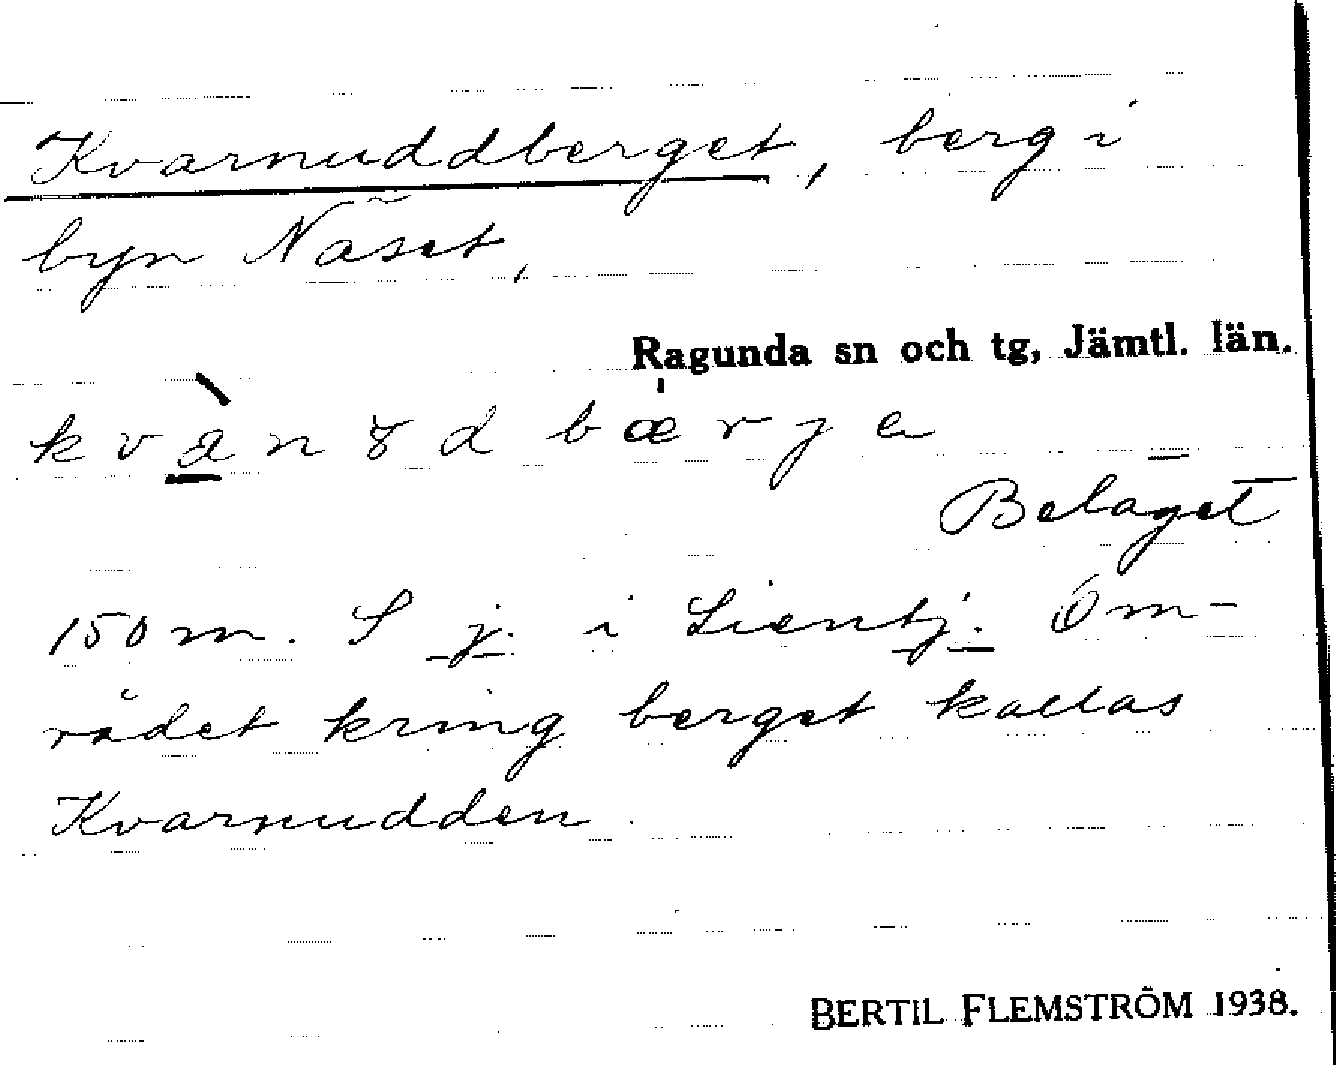 Kvarnuddberget, berg i
byn Näset,
Ragunda sn och tg, Jämtl. län.
Beläget
150 m. S j. i Lientj. Om-
rådet kring berget kallas
Kvarnudden.
BERTIL FLEMSTRÖM 1938.